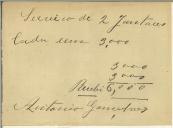 Serviço de 2 Jantares
Cada um 3,000
3000
3000
Recebi 6,000
Antonio Gonçalves